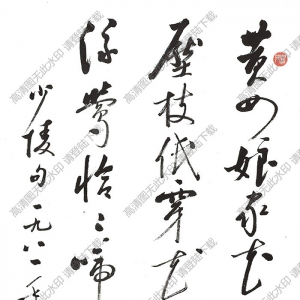 黄四娘家花
壓枝低
鶯恰恰啼
少陵句一九八二
高清图无此水印 请登陆下载